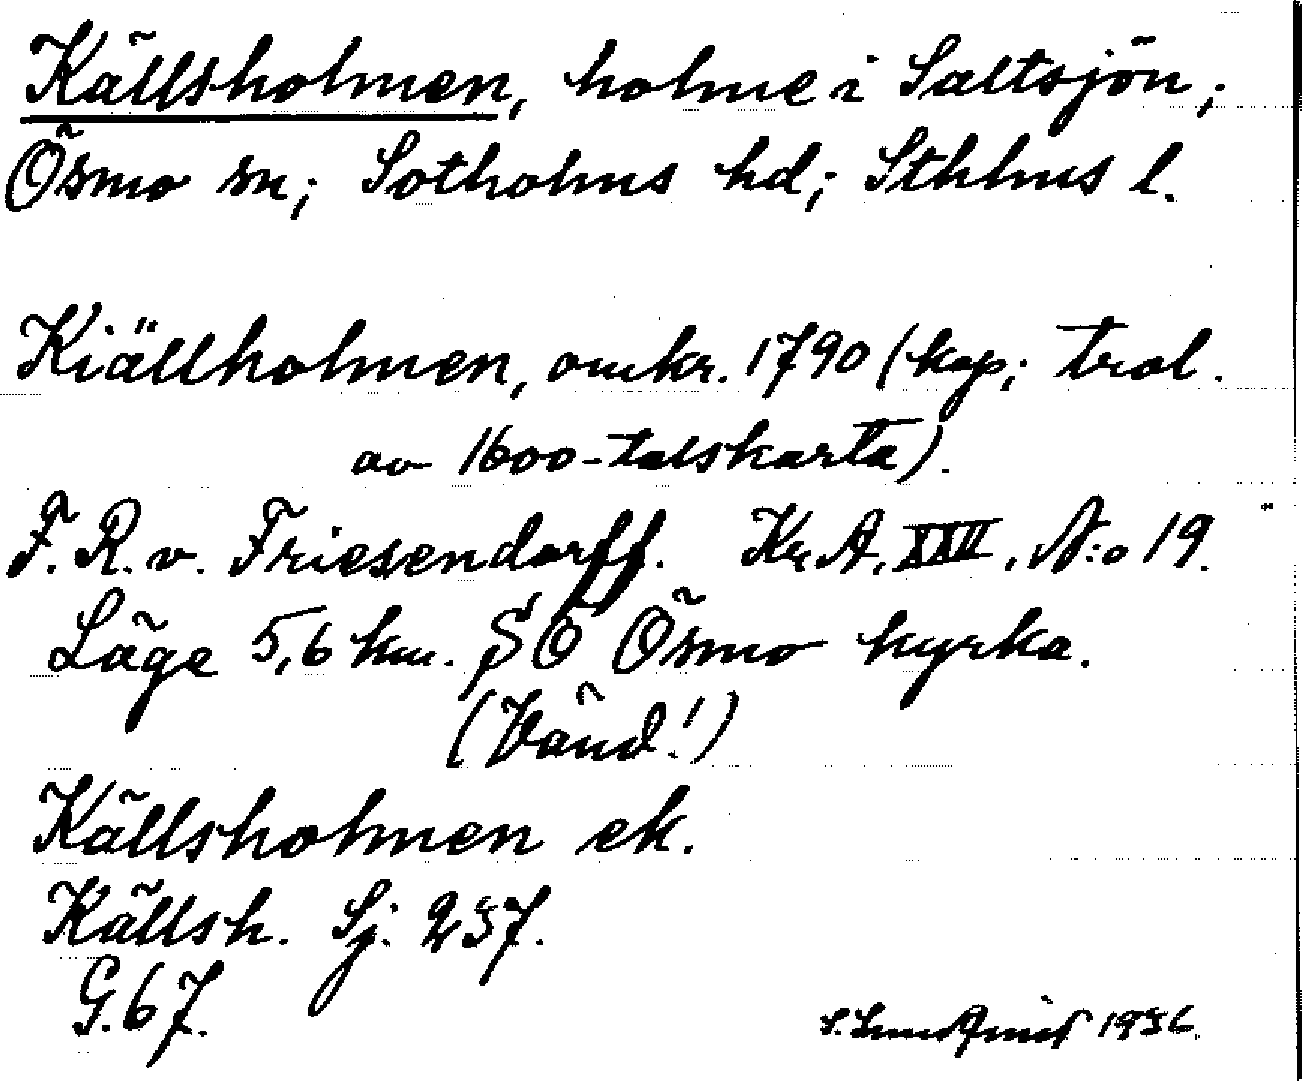 Källsholmen, holme i Saltsjön;
Ösmo sn; Sotholms hd; Sthlms l.
Kiällholmen, omkr. 1790 (kop; trol.
av 1600-talskarta).
F. R. v. Friesendorff. Kr. A. XXV. N:o 19.
Läge 5,6 km. SÖ Ösmo kyrka.
(Vänd!)
Källsholmen ek.
Källsh. Sj. 237.
G. 67.